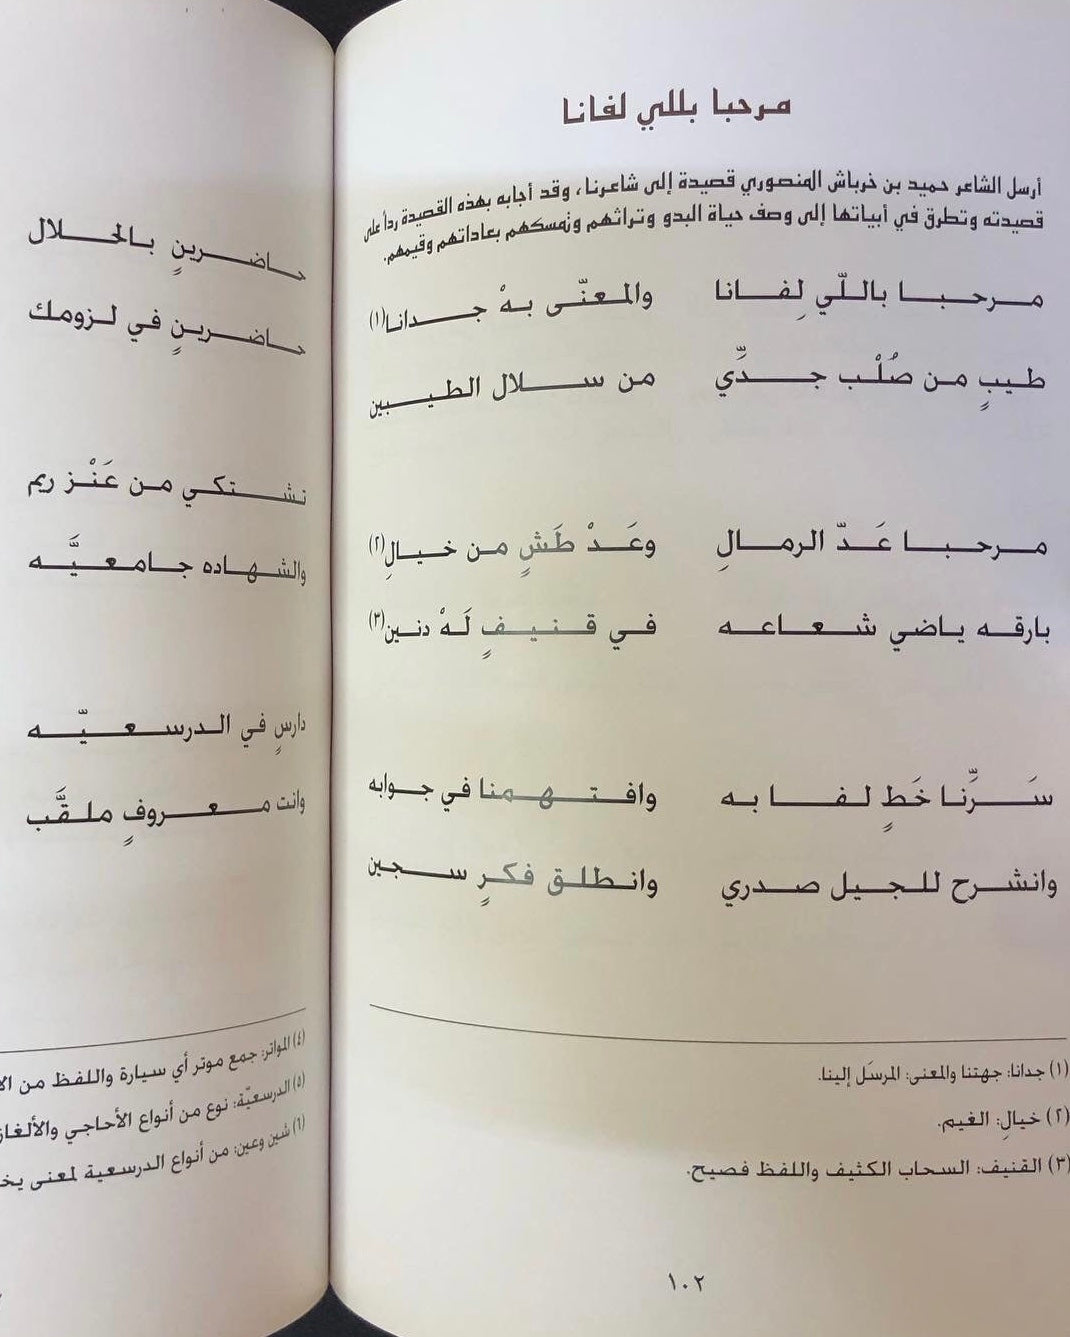 مرحبا بللي لفانا
أرسل الشاعر حميد بن خرباش المنصوري قصيدة إلى شاعرنا، وقد أجابه بهذه القصيدة رداً على
قصيدته وتطرق في أبياتها إلى وصف حياة البدو وتراثهم وتمسكهم بعاداتهم وقيمهم.
مرحبا باللّي لِفانا والمعنّى بهْ جدانا(١)
طيبٍ من صُلْب جدِّي من سلال الطيبين
مرحبا عَدّ الرمالِ وعَدْ طَشٍ من خيالِ(٢)
بارقه ياضي شعاعه في قنيفٍ لَهْ دنين(٣)
سَرِّنا خَطٍ لفا به وافتهمنا في جوابه
وانشرح للجيل صدري وانطلق فكرٍ سجين
(١) جدانا: جهتنا والمعنى: المرسَل إلينا.
(٢) خيالِ: الغيم.
(٣) القنيف: السحاب الكثيف واللفظ فصيح.
١٠٢
حاضرينٍ بالحلال
حاضرينٍ في لزومك
نشتكي من عَنْز ريم
والشهاده جامعيَّه
دارسٍ في الدرسعيّه
وانت معروفٍ ملقَّب
(٤) المواتر: جمع موتر أي سيارة واللفظ من
(٥) الدرسعيّة: نوع من أنواع الأحاجي والألغاز
(٦) شين وعين: من أنواع الدرسعية لمعنى